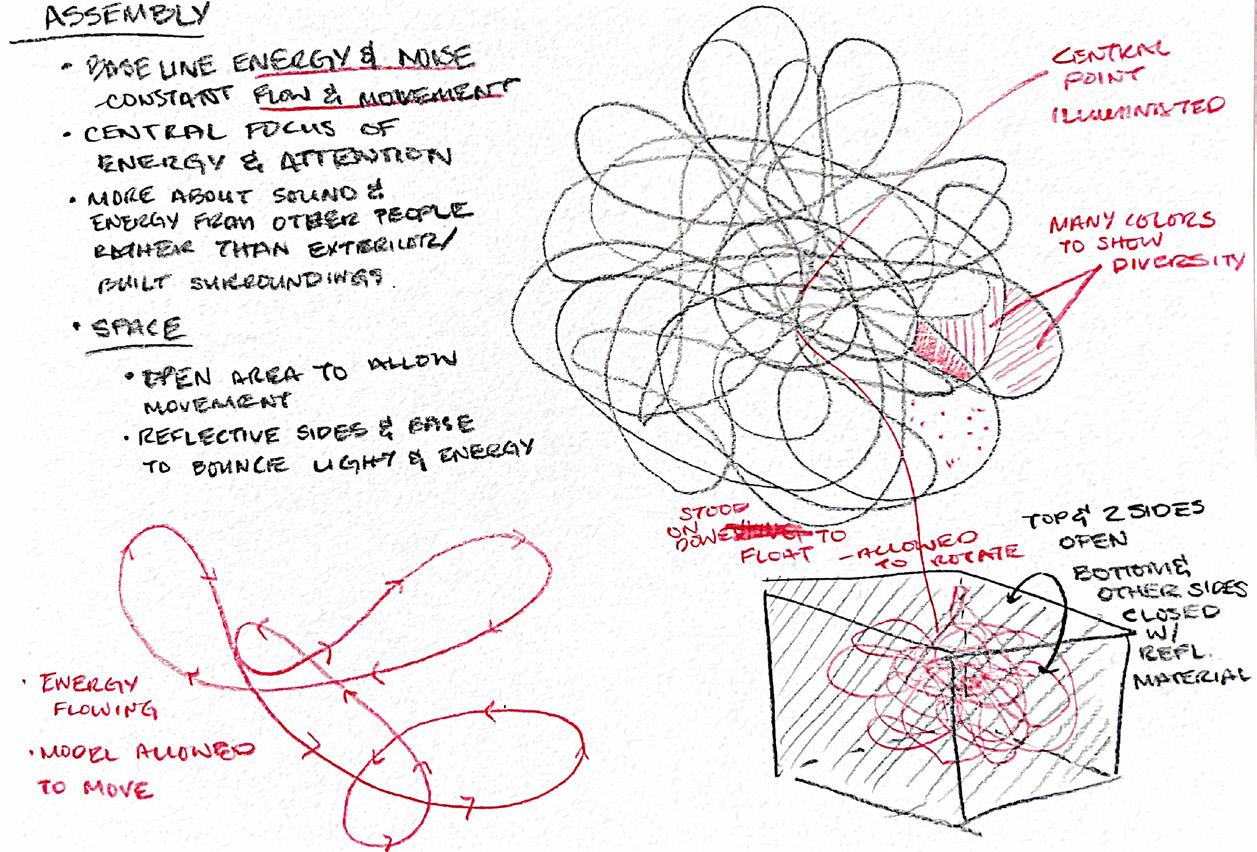 ASSEMBLY
• BASELINE ENERGY & NOISE
- CONSTANT FLOW & MOVEMENT
• CENTRAL FOCUS OF
ENERGY & ATTENTION
• MORE ABOUT SOUND &
ENERGY FROM OTHER PEOPLE
RATHER THAN EXTERIOR/
BUILT SURROUNDINGS.
• SPACE
• OPEN AREA TO ALLOW
MOVEMENT
• REFLECTIVE SIDES & BASE
TO BOUNCE LIGHT & ENERGY
CENTRAL
POINT
ILLUMINATED
MANY COLORS
TO SHOW
DIVERSITY
STOOD
ON
DOWEL TO
FLOAT - ALLOWED
TO ROTATE
TOP & 2 SIDES
OPEN
BOTTOM &
OTHER SIDES
CLOSED
W/
REFL.
MATERIAL
• ENERGY
FLOWING
• MODEL ALLOWED
TO MOVE